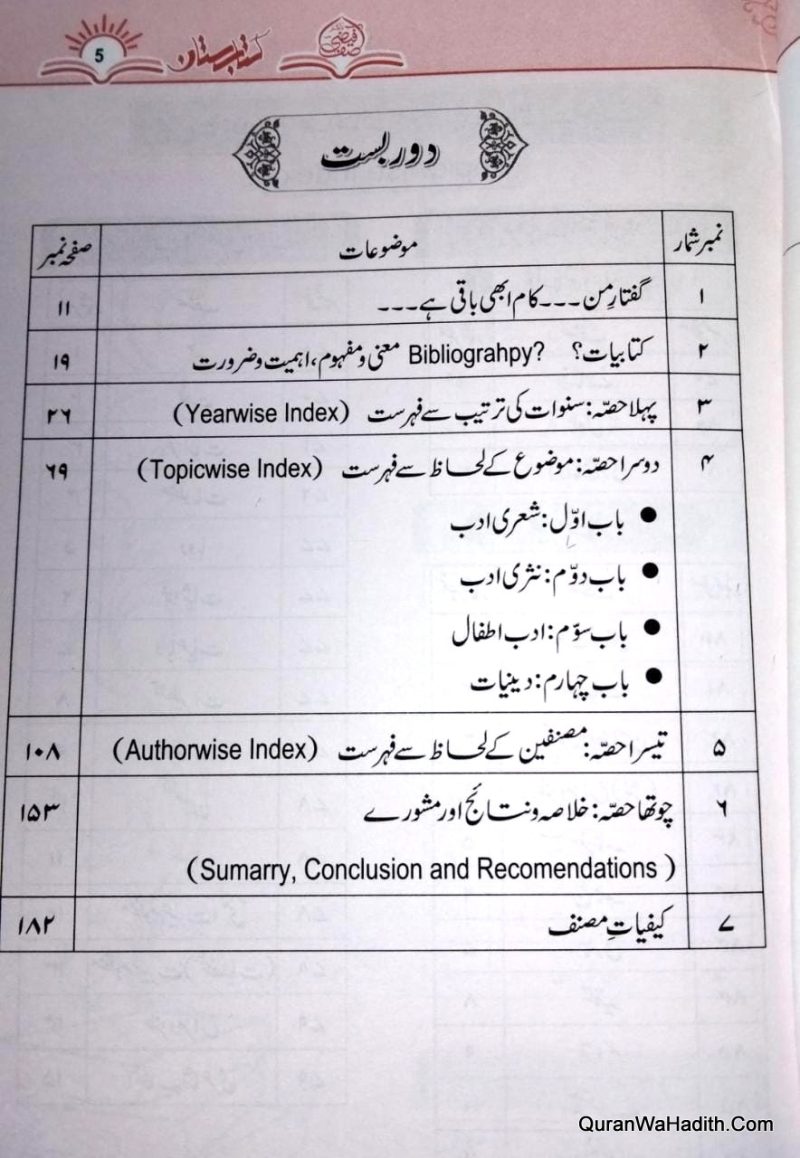 5
کتابستان
دور بست
نمبر شمار موضوعات صفحہ نمبر
۱ گفتارِ من ۔۔۔ کام ابھی باقی ہے ۔۔۔ ۱۱
۲ کتابیات؟ Bibliograhpy? معنی و مفہوم، اہمیت و ضرورت ۱۹
۳ پہلا حصّہ: سنوات کی ترتیب سے فہرست (Yearwise Index) ۲۶
۴ دوسرا حصّہ: موضوع کے لحاظ سے فہرست (Topicwise Index) ۶۹
● باب اوّل: شعری ادب
● باب دوّم: نثری ادب
● باب سوّم: ادب اطفال
● باب چہارم: دینیات
۵ تیسرا حصّہ: مصنفین کے لحاظ سے فہرست (Authorwise Index) ۱۰۸
۶ چوتھا حصّہ: خلاصہ و نتائج اور مشورے ۱۵۳
(Sumarry, Conclusion and Recomendations )
۷ کیفیاتِ مصنف ۱۸۲
QuranWaHadith.Com